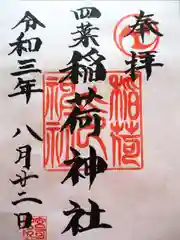 奉拝
四葉稲荷神社
令和三年
八月廿二日
稲荷